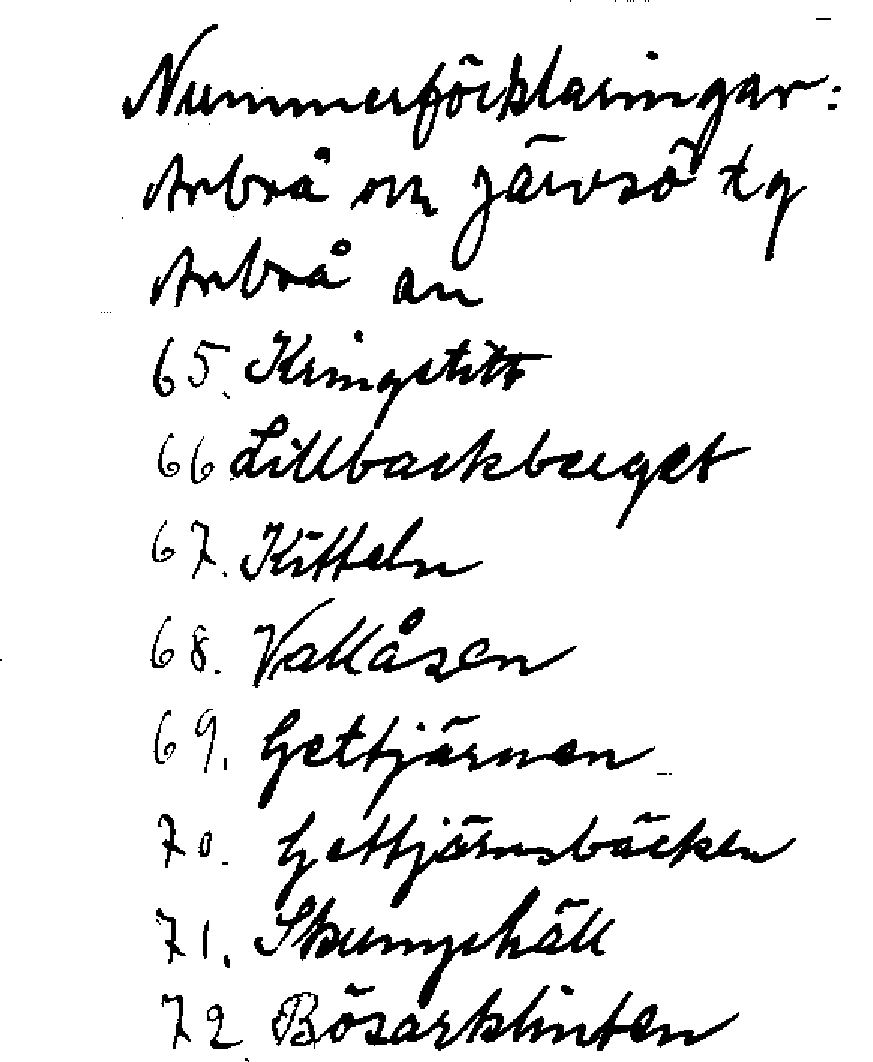 Nummerförklaringar:
Arbrå och Järvsö tg
Arbrå sn
65. Kringstitt
66 Lillbackberget
67. Kitteln
68. Vallåsen
69. Gettjärnen
70. Gettjärnsbäcken
71. Skunghäll
72 Bösarklinten